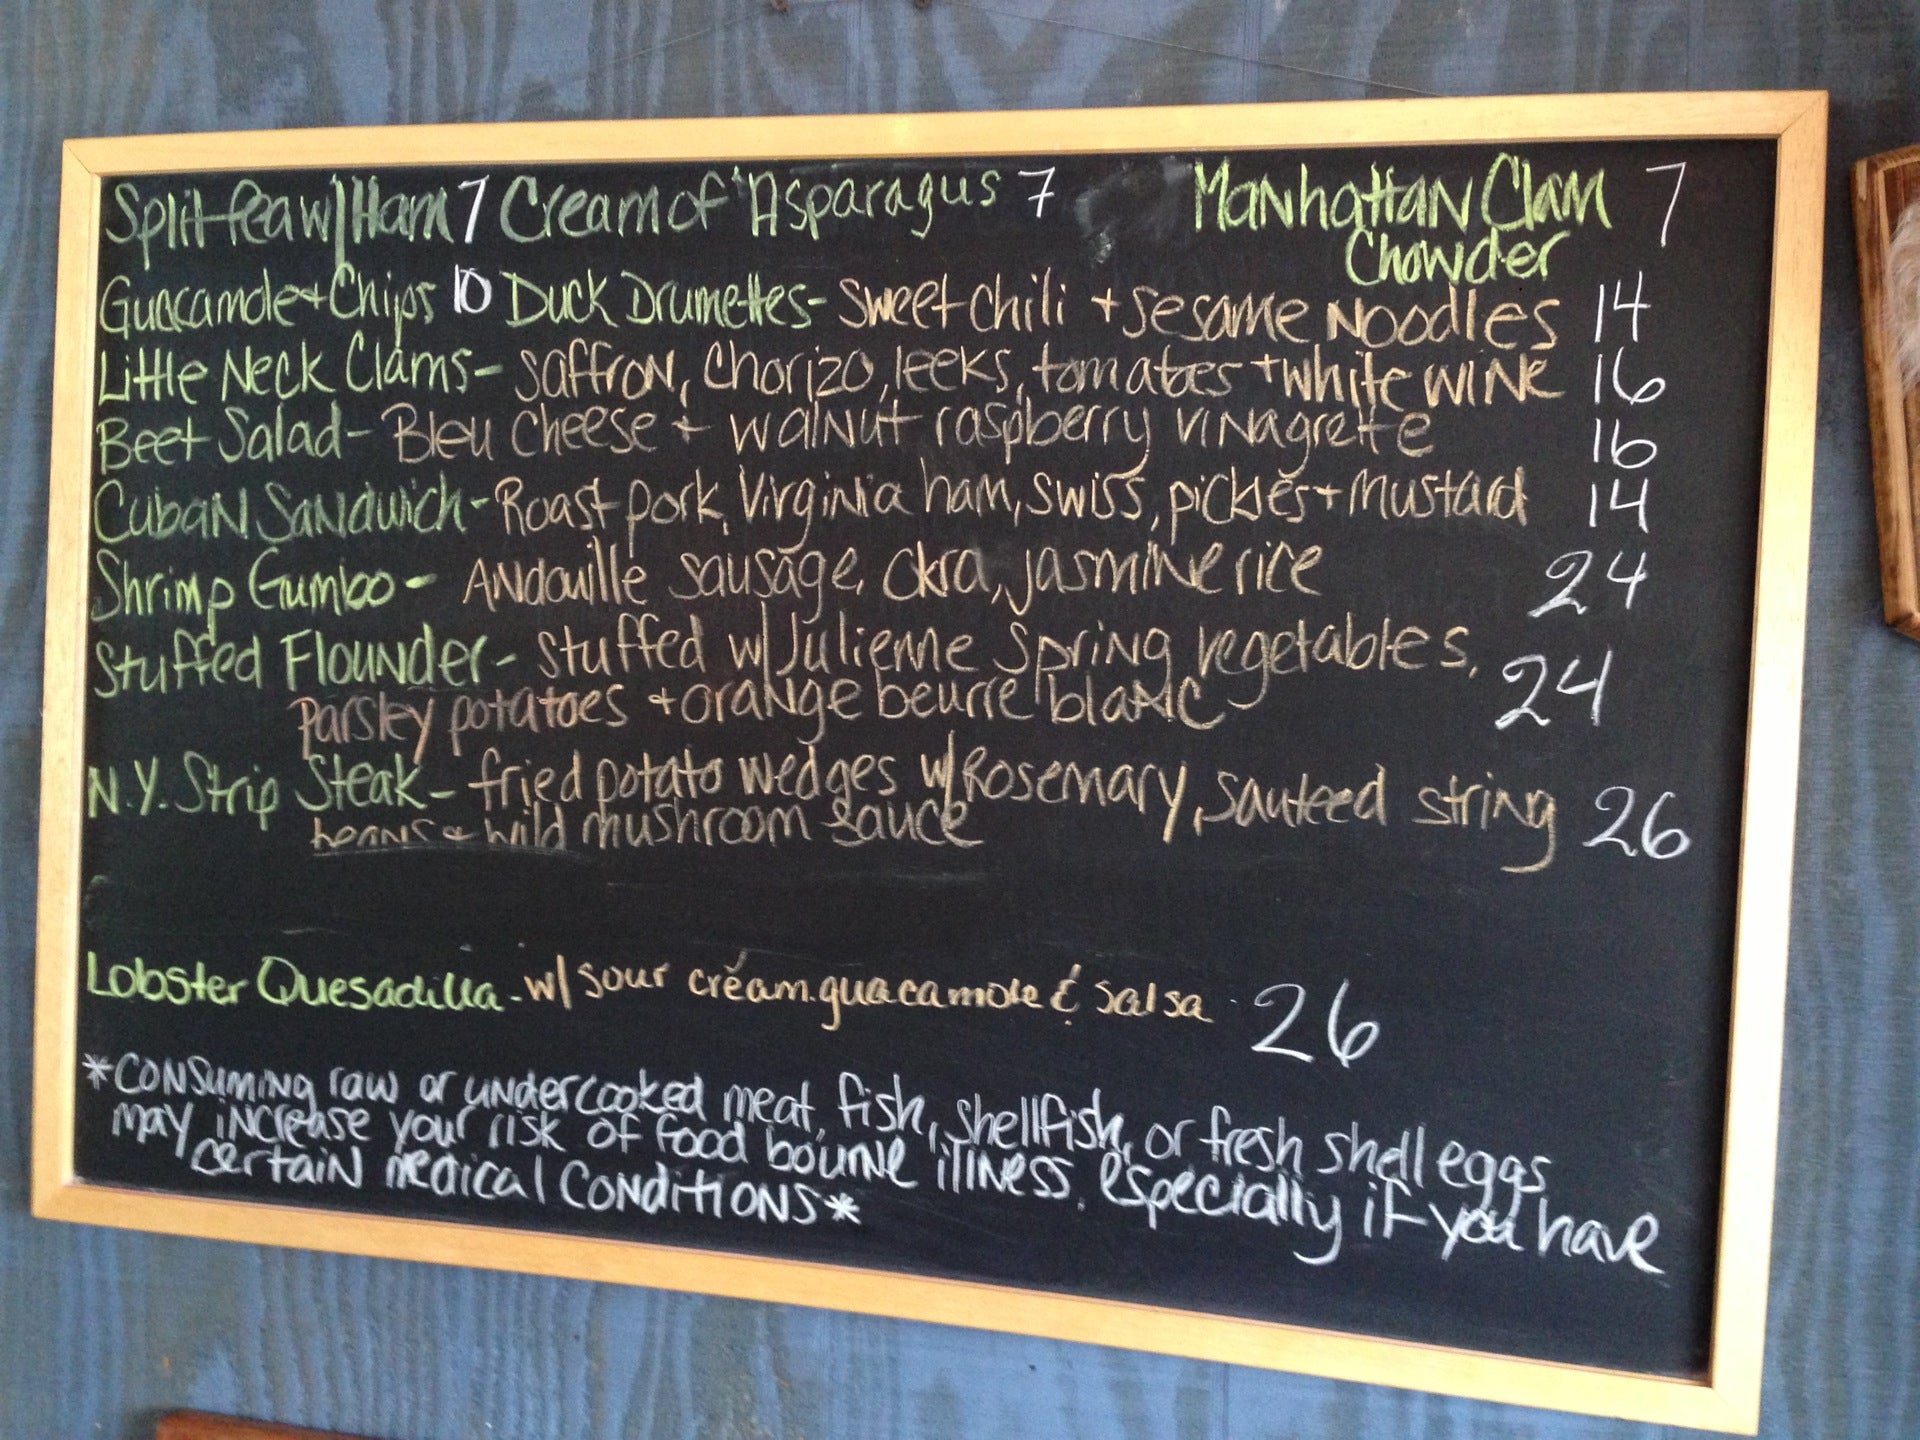 Split Pea w/ Ham 7 Cream of Asparagus 7 Manhattan Clam 7
Chowder
Guacamole + Chips 10 Duck Drumettes - sweet chili + sesame noodles 14
Little Neck Clams - saffron, chorizo, leeks, tomatoes + white wine 16
Beet Salad - Bleu cheese + walnut raspberry vinagrette 16
Cuban Sandwich - Roast pork, Virginia ham, swiss, pickles + mustard 14
Shrimp Gumbo - Andouille sausage, okra, jasmine rice 24
Stuffed Flounder - stuffed w/ Julienne spring vegetables,
parsley potatoes + orange beurre blanc 24
N.Y. Strip Steak - fried potato wedges w/ Rosemary, sauteed string 26
beans + wild mushroom sauce
Lobster Quesadilla - w/ sour cream. guacamole & salsa 26
*Consuming raw or undercooked meat, fish, shellfish, or fresh shell eggs
may increase your risk of food bourne illness, especially if you have
certain medical conditions*